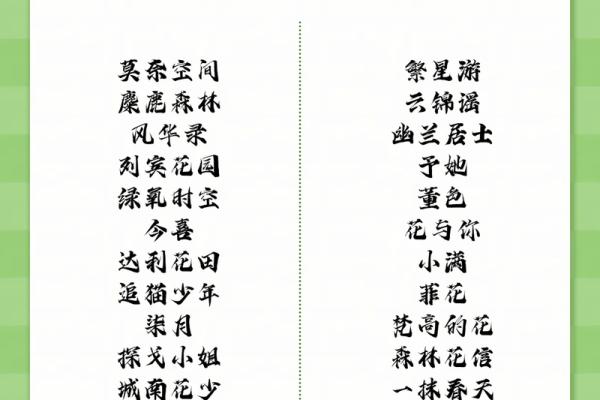 莫奈空间
麋鹿森林
风华录
列宾花园
绿氧时空
今喜
达利花田
追猫少年
柒月
探戈小姐
城南花少
繁星游
云锦谣
幽兰居士
予她
董色
花与你
小满
菲花
梵高的花
森林花信
一抹春天